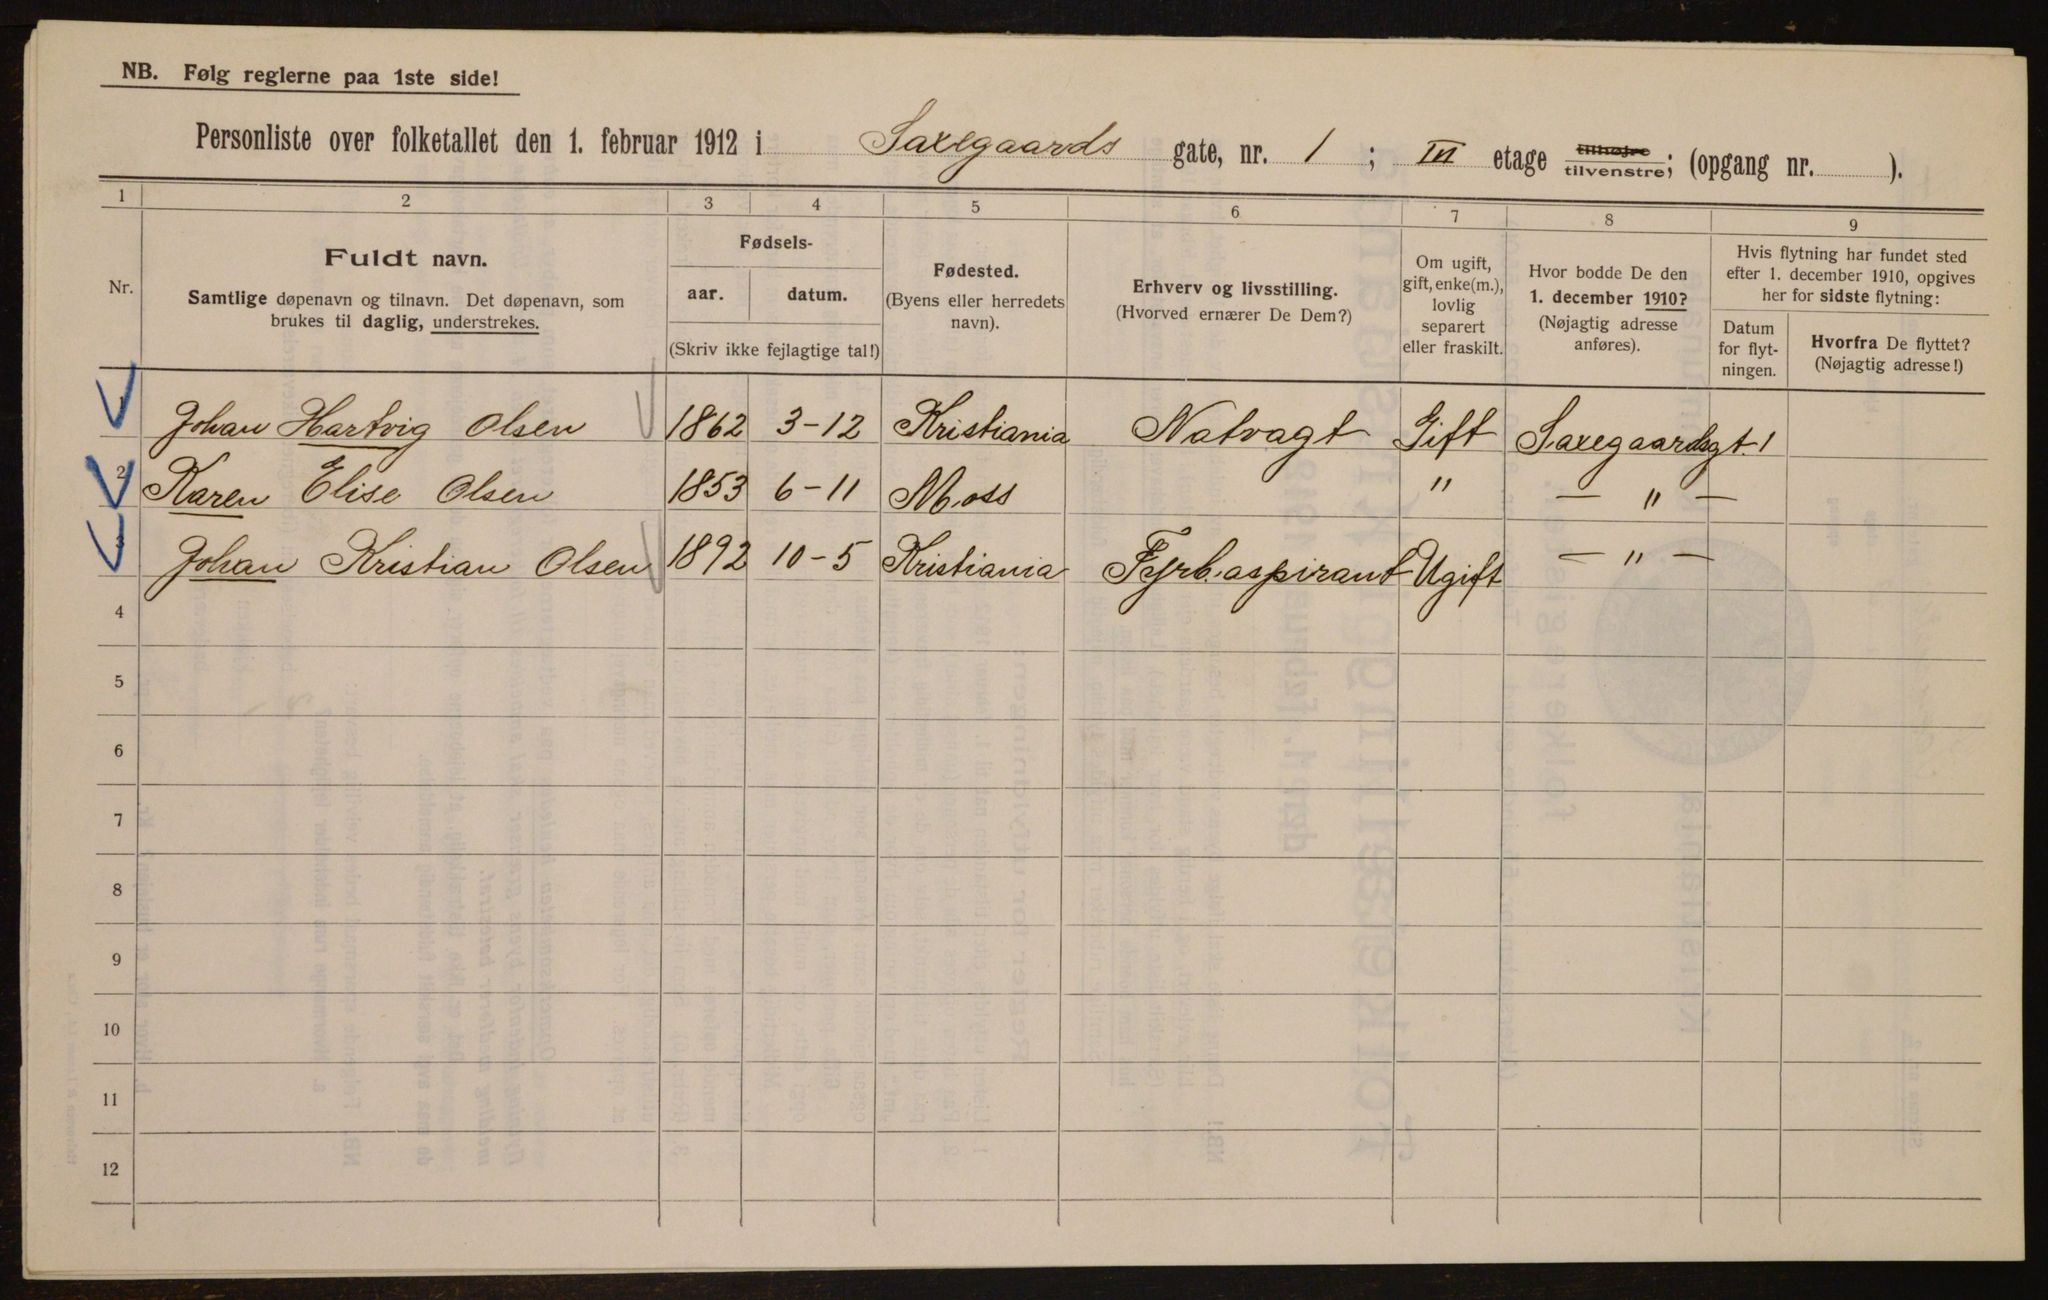 NB. Følg reglerne paa 1ste side!
Personliste over folketallet den 1. februar 1912 i Saxegaards gate, nr. 1 ; III etage tilhøjre tilvenstre; (opgang nr. ).
1 2 3 4 5 6 7 8 9
Nr.
Fuldt navn.
Samtlige døpenavn og tilnavn. Det døpenavn, som
brukes til daglig, understrekes.
Fødsels-
aar. datum.
(Skriv ikke fejlagtige tal!)
Fødested.
(Byens eller herredets
navn).
Erhverv og livsstilling.
(Hvorved ernærer De Dem?)
Om ugift,
gift, enke(m.),
lovlig
separert
eller fraskilt.
Hvor bodde De den
1. december 1910?
(Nøjagtig adresse
anføres).
Hvis flytning har fundet sted
efter 1. december 1910, opgives
her for sidste flytning:
Datum
for flyt-
ningen.
Hvorfra De flyttet?
(Nøjagtig adresse!)
1 Johan Hartvig Olsen 1862 3-12 Kristiania Natvagt Gift Saxegaardsgt. 1
2 Karen Elise Olsen 1853 6-11 Moss " — " —
3 Johan Kristian Olsen 1892 10-5 Kristiania Fyrb.aspirant Ugift — " —
4
5
6
7
8
9
10
11
12